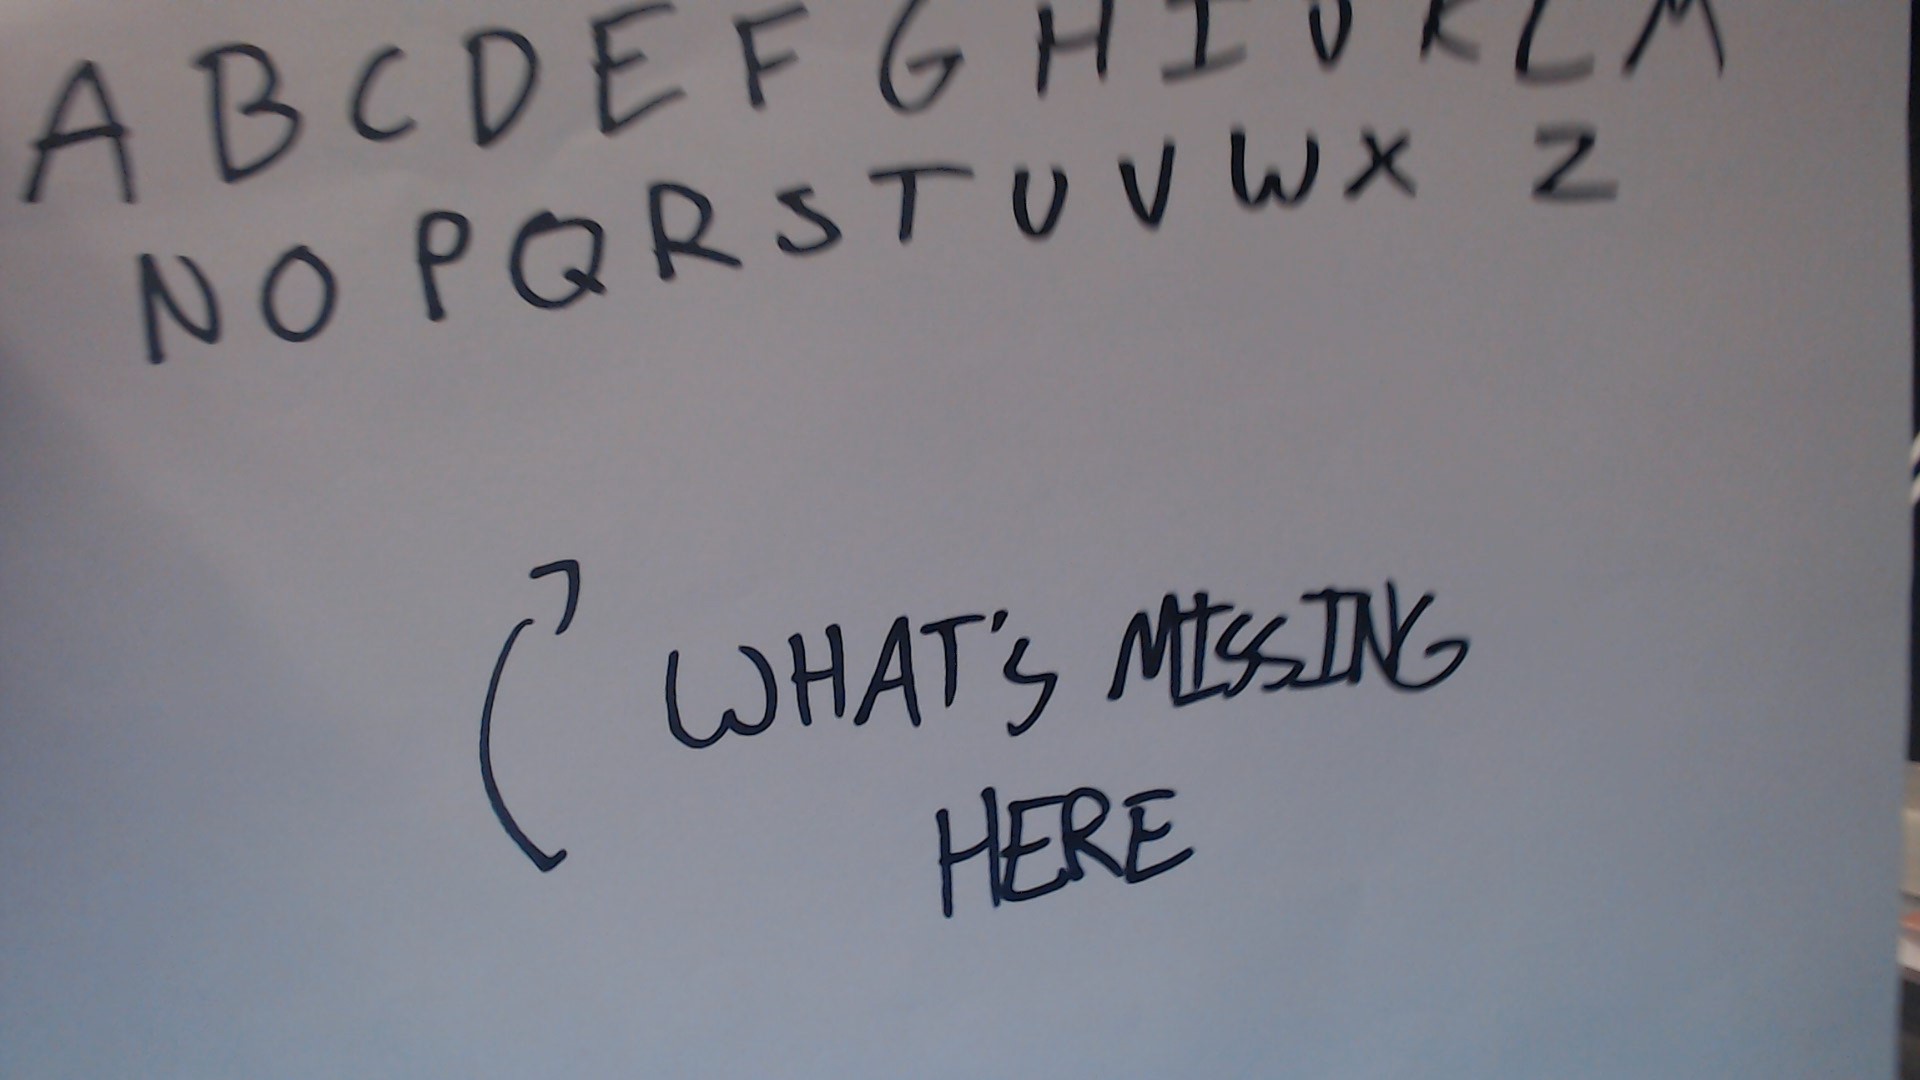 A B C D E F G H I J K L M
N O P Q R S T U V W X Z
WHAT'S MISSING
HERE